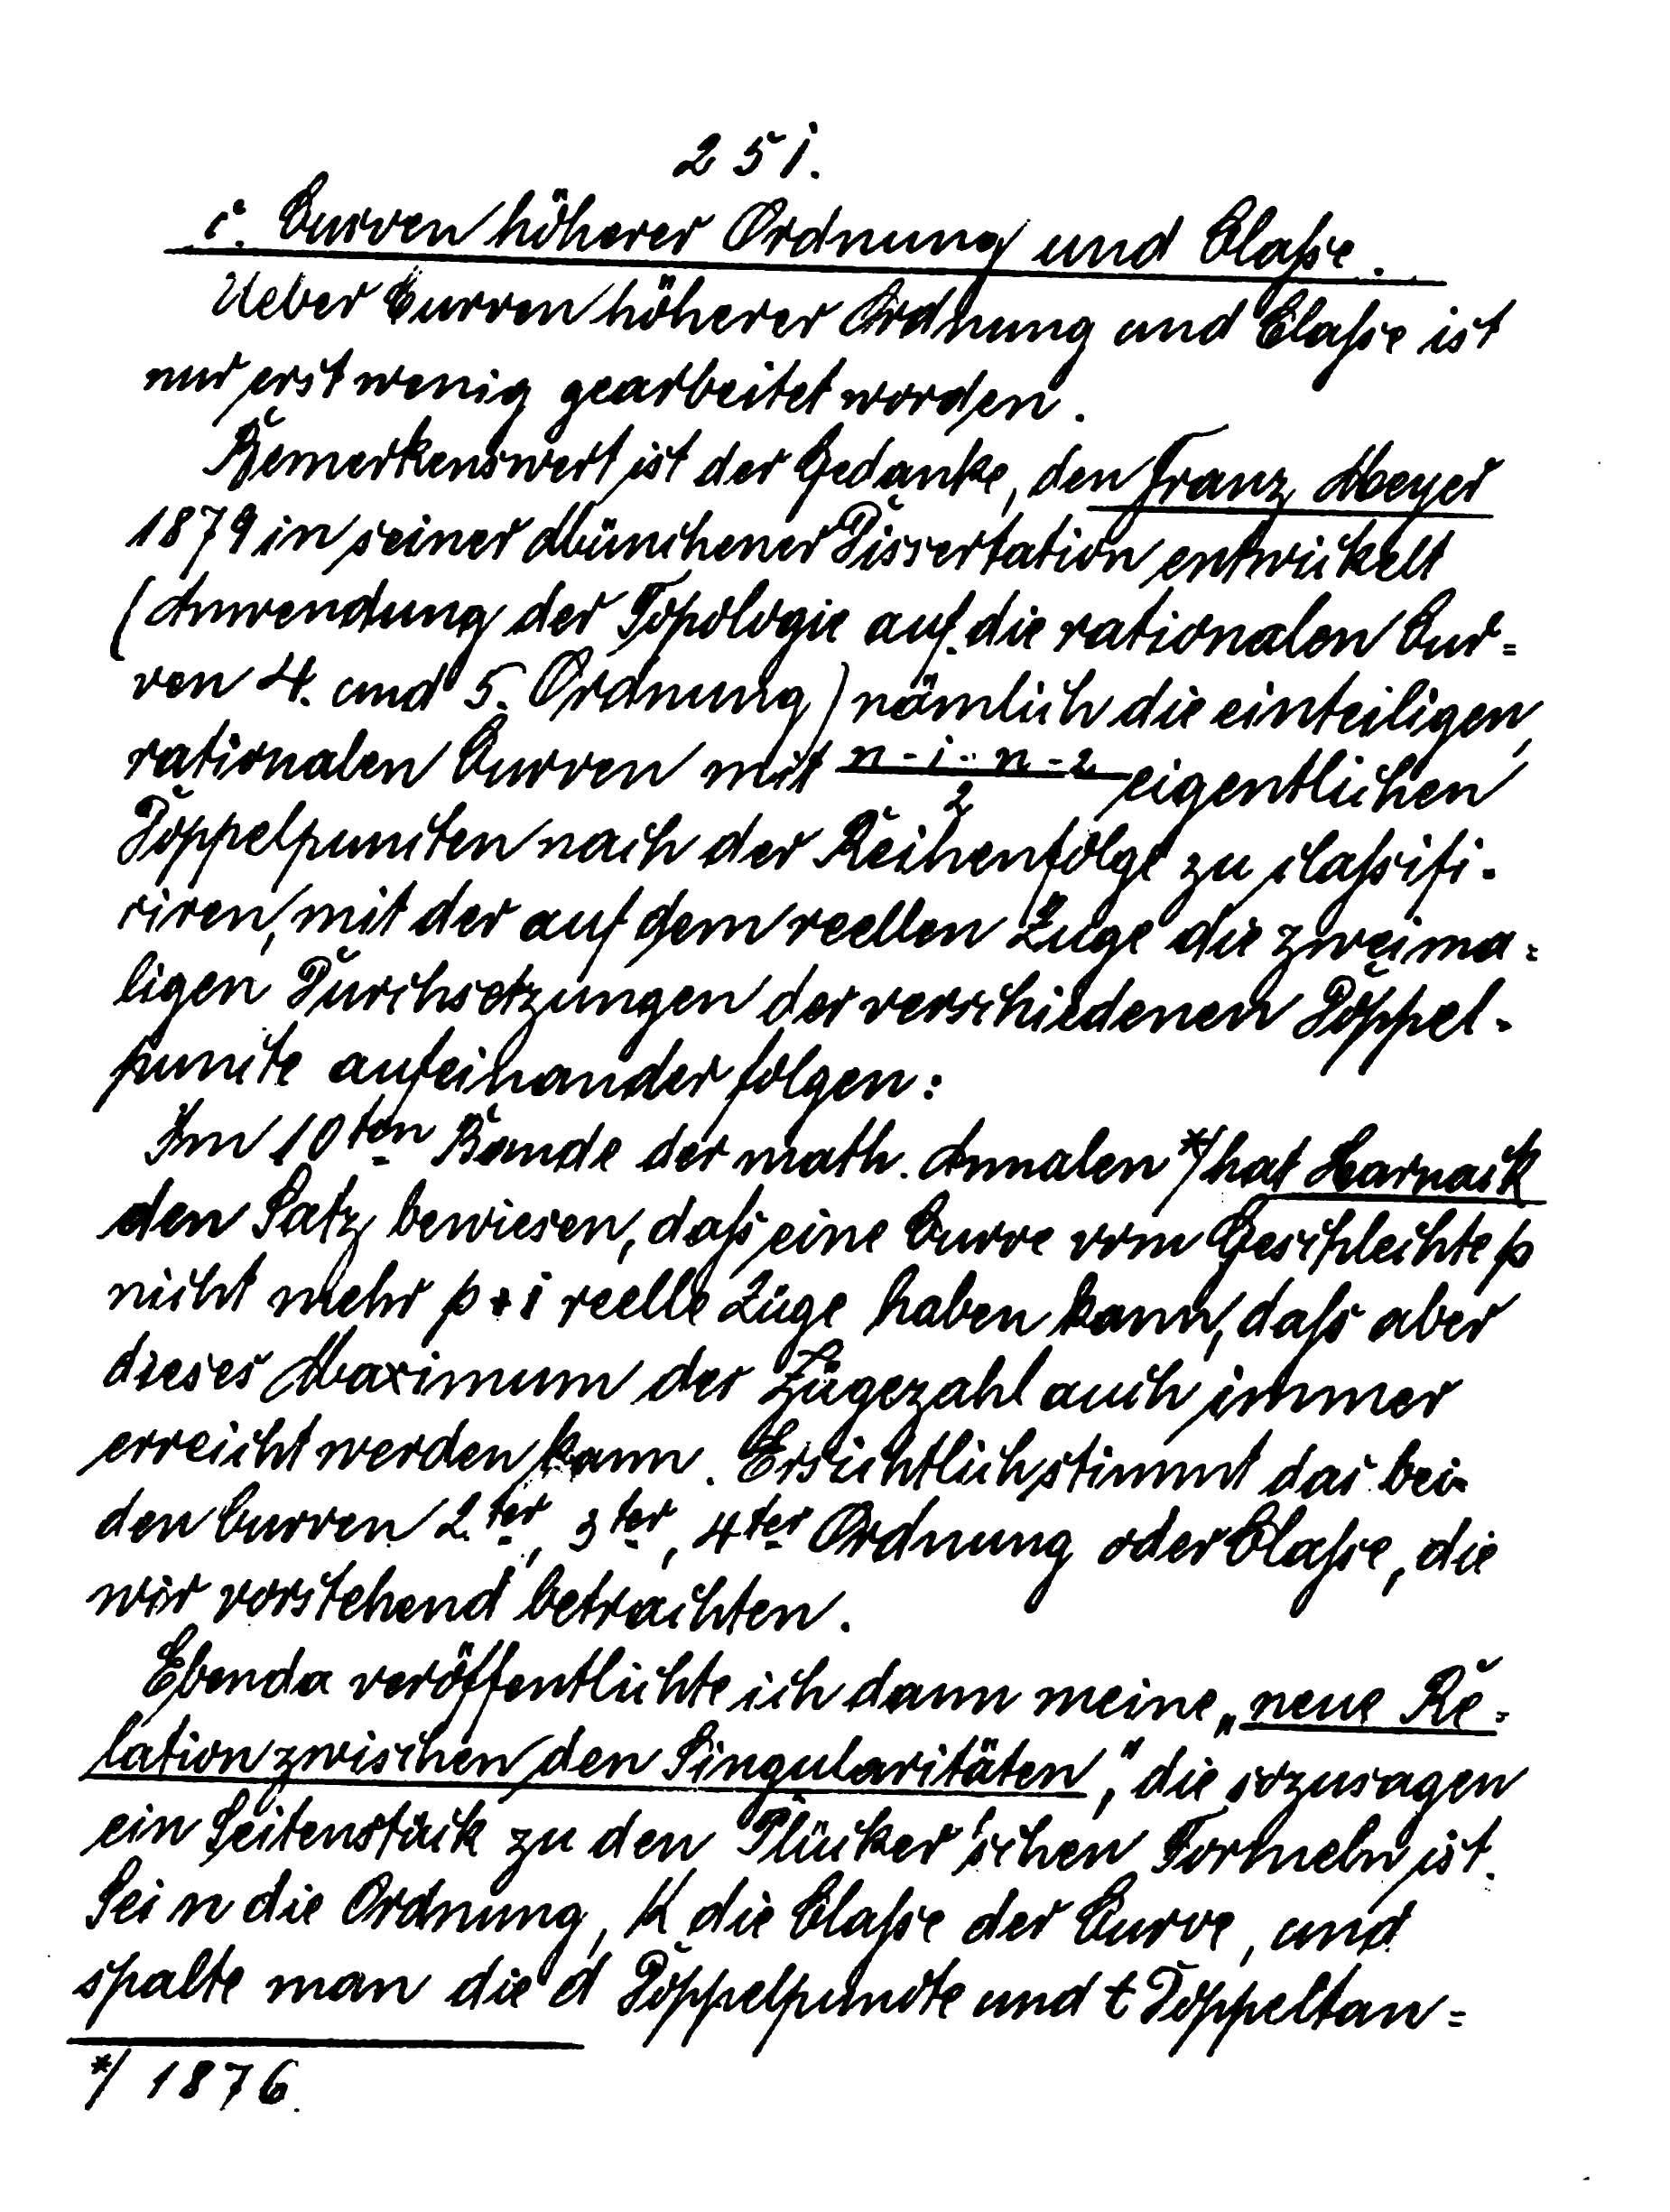 251.
c. Curven höherer Ordnung und Claſse.
Ueber Curven höherer Ordnung und Claſse ist
nur erst wenig gearbeitet worden.
Bemerkenswert ist der Gedanke, den Franz Meyer
1879 in seiner Münchener Dissertation entwickelt
(Anwendung der Topologie auf die rationalen Cur=
ven 4. und 5. Ordnung) nämlich die einteiligen,
rationalen Curven mit n-1·n-2/2 eigentlichen
Doppelpuncten nach der Reihenfolge zu claſsifi-
ciren, mit der auf dem reellen Zuge die zweima=
ligen Durchsetzungen der verschiedenen Doppel-
puncte aufeinander folgen:
Im 10ten Bande der math. Annalen *) hat Harnack
den Satz bewiesen, daſs eine Curve vom Geschlechte p
nicht mehr p+1 reelle Züge haben kann, daſs aber
dieses Maximum der Zügezahl auch immer
erreicht werden kann. Ersichtlich stimmt das bei
den Curven 2ter, 3ter, 4ter Ordnung oder Claſse, die
wir vorstehend betrachten.
Ebenda veröffentlichte ich dann meine „neue Re=
lation zwischen den Singularitäten," die sozusagen
ein Seitenstück zu den Plücker'schen Formeln ist.
Sei n die Ordnung, K die Claſse der Curve, und
spalte man die d Doppelpuncte und t Doppeltan=
*) 1876.